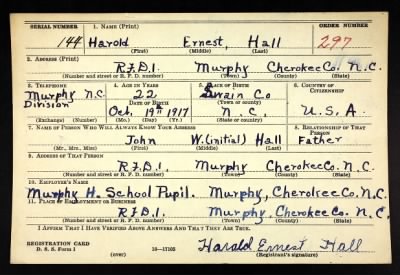 SERIAL NUMBER 1. NAME (Print) ORDER NUMBER
144 Harold Ernest, Hall 297
(First) (Middle) (Last)
2. ADDRESS (Print)
R.F.D.1. Murphy Cherokee Co. N.C.
(Number and street or R. F. D. number) (Town) (County) (State)
3. TELEPHONE 4. AGE IN YEARS 5. PLACE OF BIRTH 6. COUNTRY OF CITIZENSHIP
Murphy N.C. 22 Swain Co
Division DATE OF BIRTH (Town or county)
Oct. 19th 1917 N.C. U.S.A.
(Exchange) (Number) (Mo.) (Day) (Yr.) (State or country)
7. NAME OF PERSON WHO WILL ALWAYS KNOW YOUR ADDRESS 8. RELATIONSHIP OF THAT PERSON
John W.(initial) Hall Father
(Mr., Mrs., Miss) (First) (Middle) (Last)
9. ADDRESS OF THAT PERSON
R.F.D.1. Murphy Cherokee Co. N.C.
(Number and street or R. F. D. number) (Town) (County) (State)
10. EMPLOYER'S NAME
Murphy H. School Pupil. Murphy, Cherokee Co. N.C.
11. PLACE OF EMPLOYMENT OR BUSINESS
R.F.D.1. Murphy, Cherokee Co. N.C.
(Number and street or R. F. D. number) (Town) (County) (State)
I AFFIRM THAT I HAVE VERIFIED ABOVE ANSWERS AND THAT THEY ARE TRUE.
REGISTRATION CARD Harold Ernest Hall
D. S. S. Form 1 16—17105 (Registrant's signature)
(over)